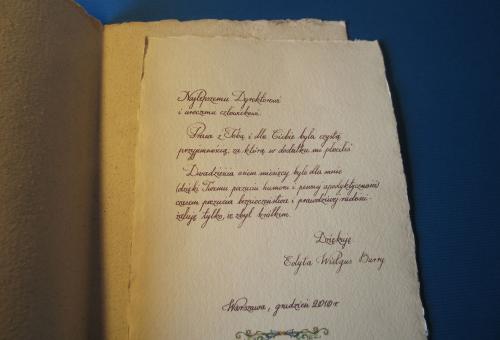 Najlepszemu Dyrektorowi
i uroczemu człowiekowi.
Praca z Tobą i dla Ciebie była czystą
przyjemnością, za którą w dodatku mi płacili!
Dwadzieścia osiem miesięcy było dla mnie
(dzięki Twemu poczuciu humoru i pewnej apodyktyczności)
czasem poczucia bezpieczeństwa i prawdziwej radości
żałuję tylko, iż zbyt krótkim.
Dziękuję
Edyta Wielgus Barry
Warszawa, grudzień 2010 r